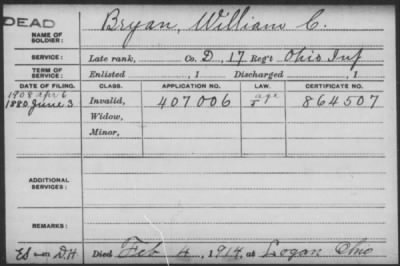 DEAD
NAME OF SOLDIER: Bryan, William C.
SERVICE: Late rank, Co. D, 17 Reg't Ohio Inf
TERM OF SERVICE: Enlisted , 1 Discharged , 1
DATE OF FILING. CLASS. APPLICATION NO. LAW. CERTIFICATE NO.
1908 Apr 6
1880 June 3 Invalid, 407006 age 864507
Widow,
Minor,
ADDITIONAL SERVICES:
REMARKS:
Died Feb 4, 1914, at Logan Ohio